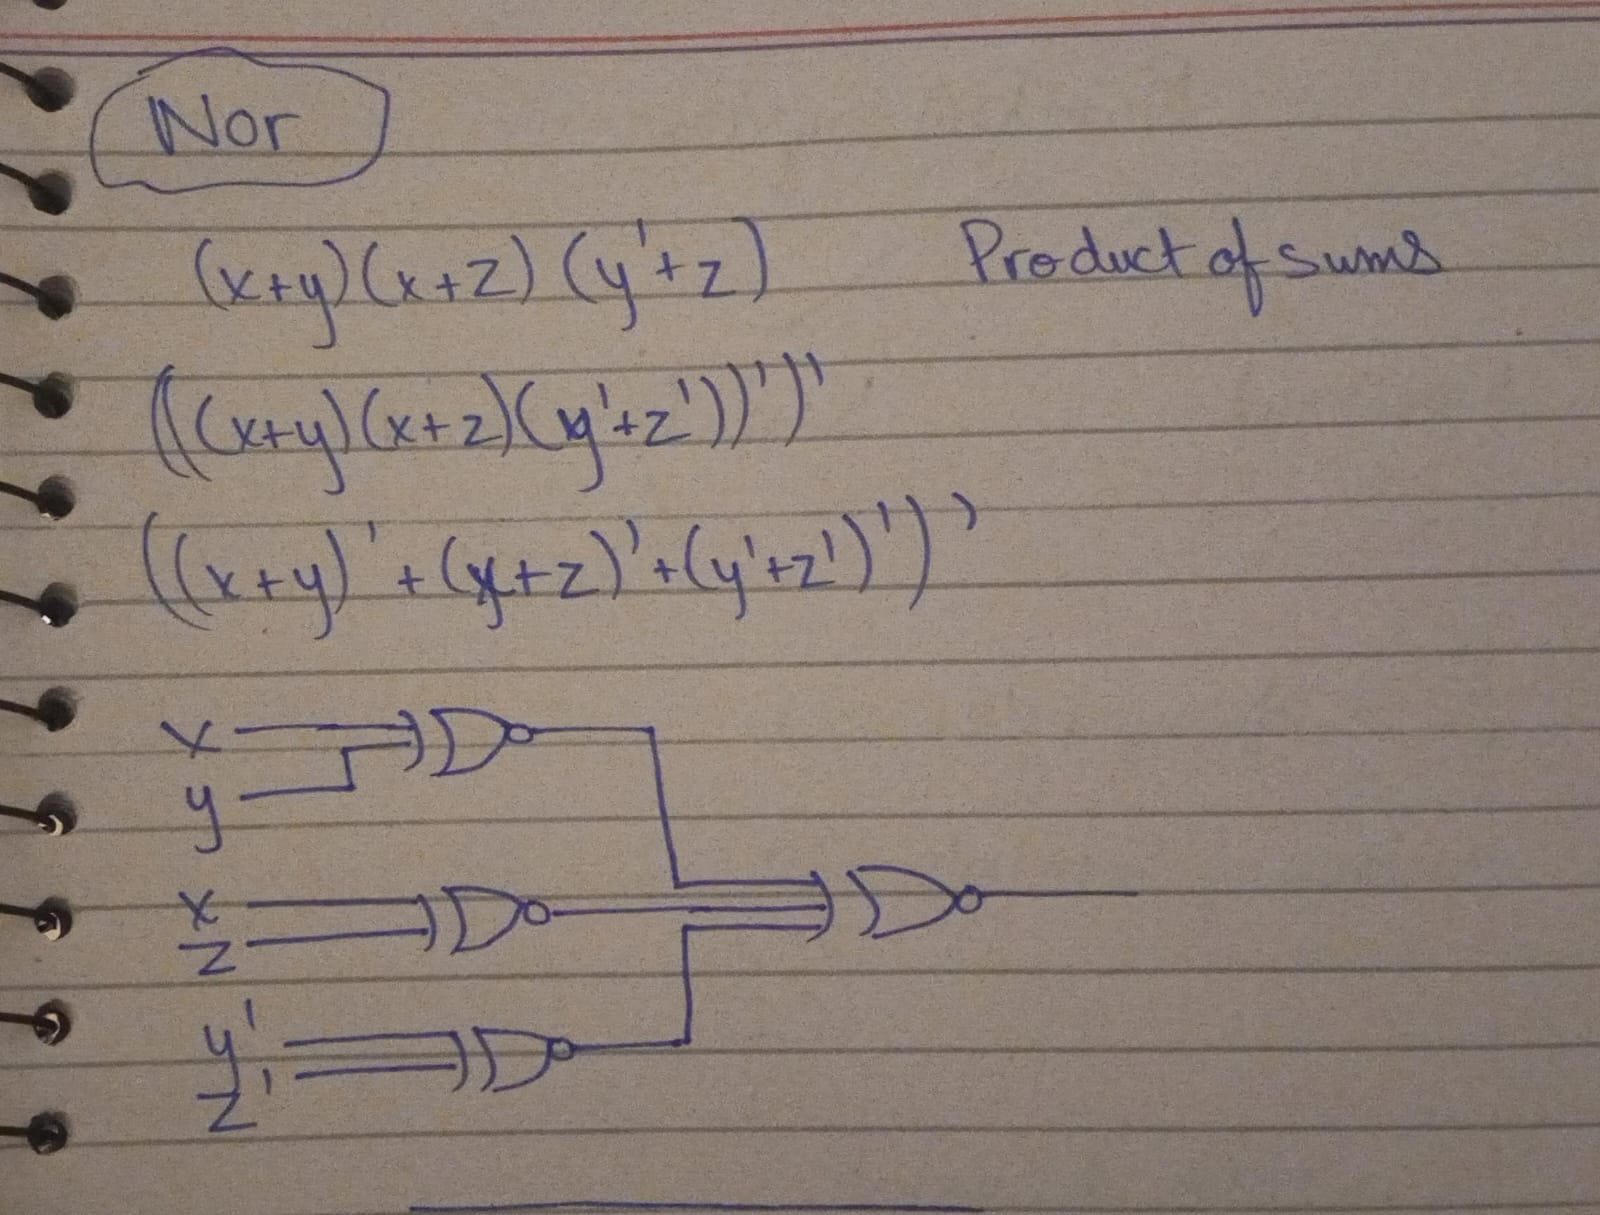 Nor
(x+y)(x+z)(y'+z) Product of sums
(((x+y)(x+z)(y'+z'))')'
((x+y)'+(x+z)'+(y'+z')')'
x
y
x
z
y'
z'